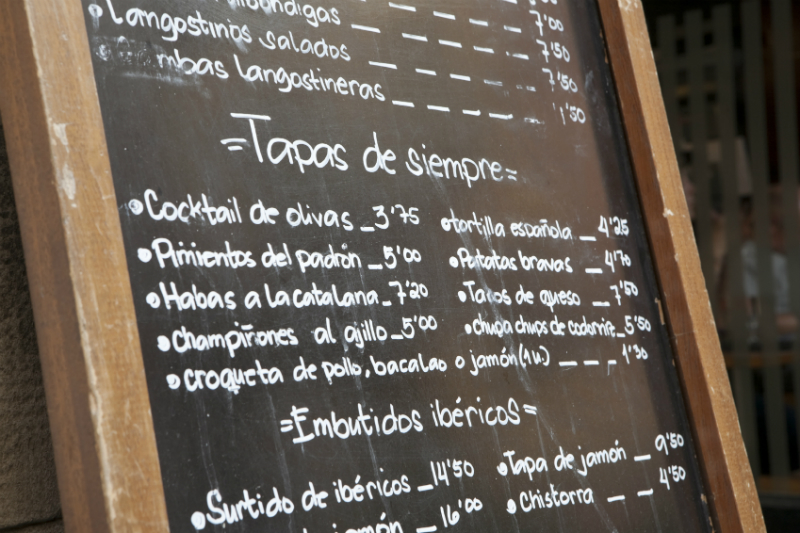 7'00
Langostinos salados _ _ _ _ 7'50
mbas langostineras _ _ _ _ 7'50
1'50
=Tapas de siempre=
•Cocktail de olivas _ 3'75 •tortilla española _ 4'25
•Pimientos del padrón _ 5'00 •Patatas bravas _ 4'70
•Habas a la catalana _ 7'20 •Tacos de queso _ 7'50
•Champiñones al ajillo _ 5'00 •chupa chups de codorniz _ 5'50
•croqueta de pollo, bacalao o jamón (1u.) _ _ _ 1'30
=Embutidos ibéricos=
•Surtido de ibéricos _ 14'50 •Tapa de jamón _ 9'50
jamón _ 16'00 •Chistorra _ _ 4'50